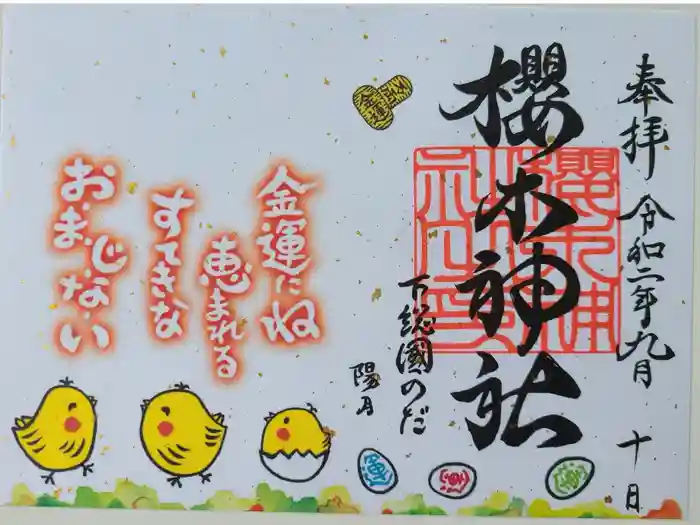 奉拝 令和二年九月 十日
櫻木神社
下総國のだ
陽月
金運にね
恵まれる
すてきな
おまじない